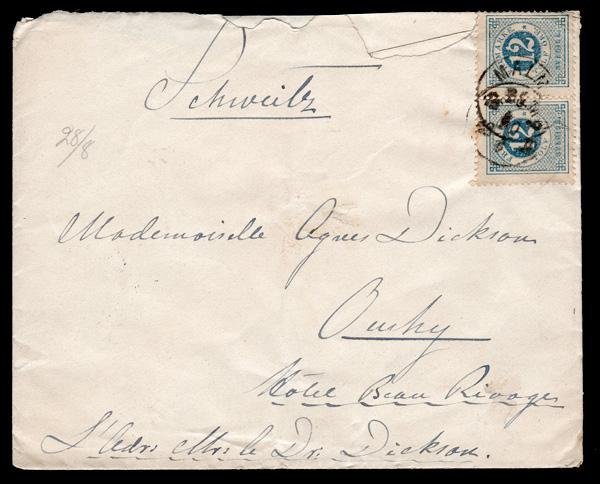 Schweitz
28/8
12
12
Mademoiselle Agnes Dickson
Ouchy
Hôtel Beau Rivage
L'Adr: Mr: le Dr: Dickson.